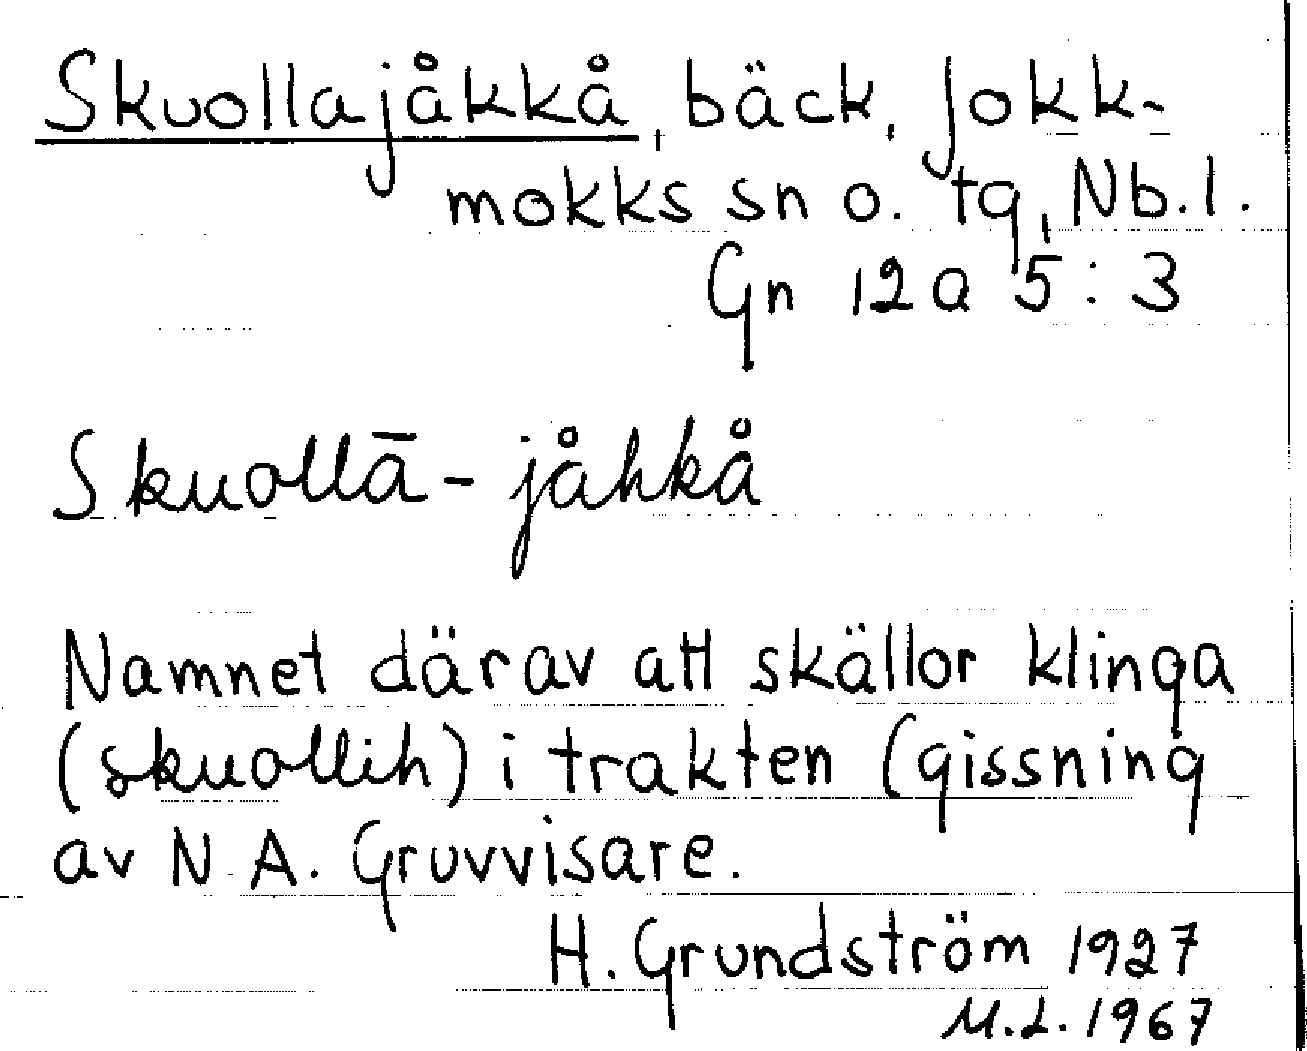 Skuollajåkkå, bäck, Jokk-
mokks sn o. tg, Nb.l.
Gn 12 a 5 : 3
Skuollā-jåhkå
Namnet därav att skällor klinga
(skuollih) i trakten (gissning
av N. A. Gruvvisare.
H. Grundström 1927
M.L. 1967